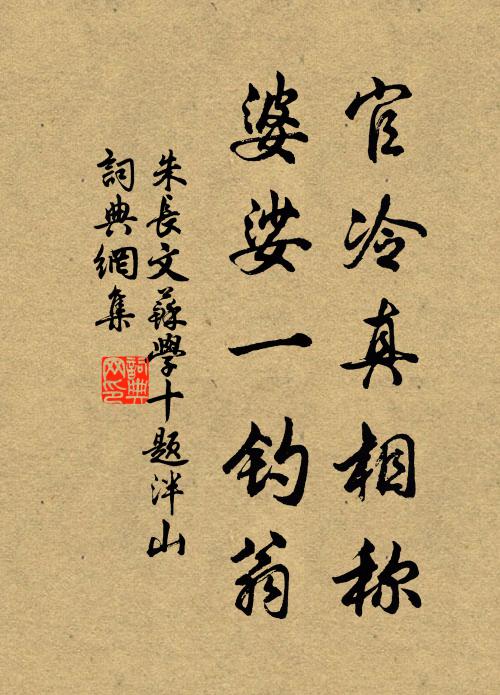 官冷真相称
婆娑一钓翁
朱長文蘇學十題泮山
詞典網集
詞典網印